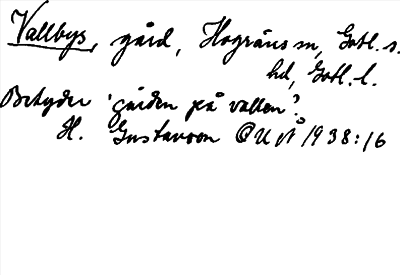 Vallbys, gård, Hogräns sn, Gotl. s.
hd, Gotl. l.
Betyder 'gården på vallen'?
H. Gustavson OUÅ 1938:16